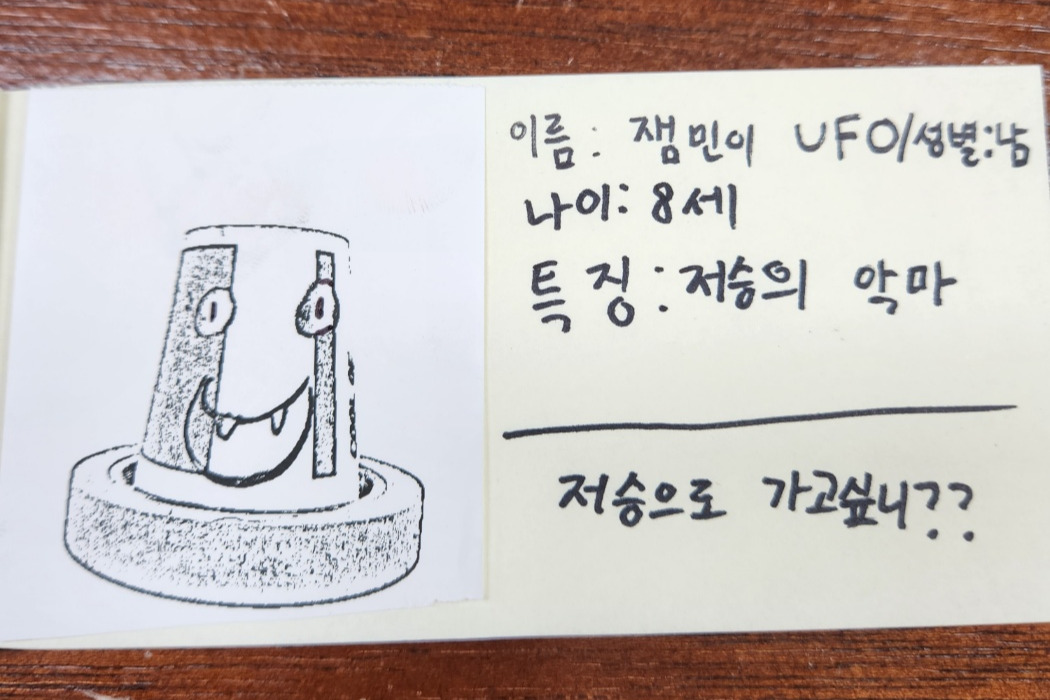 이름: 잼민이 UFO/성별:남
나이: 8세
특징: 저승의 악마
저승으로 가고싶니??